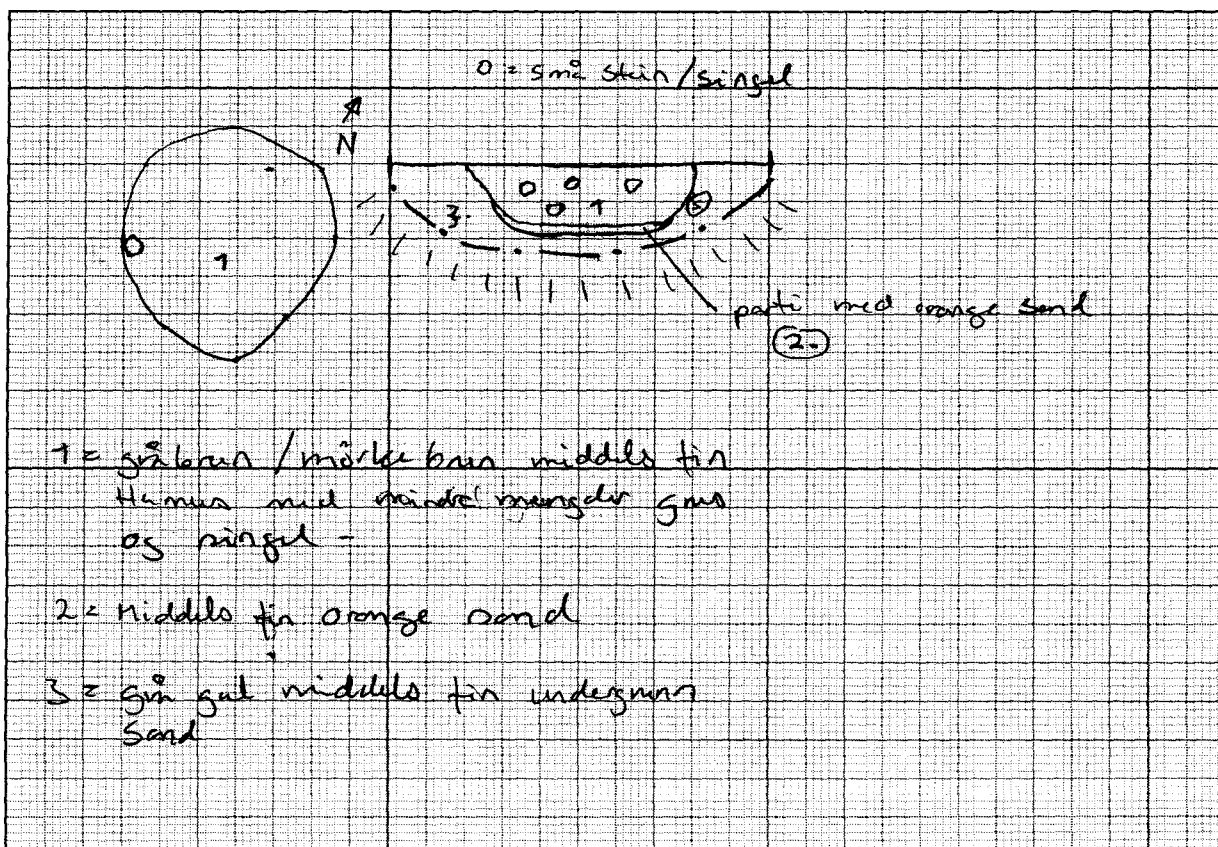 0 = små stein/singel
N
3.
1
3
1
parti med orange sand
2.
1 = gråbrun / mörke brun middels fin
Humus med mindre mængder grus
og singel -
2 = Middels fin orange sand
3 = grå gul middels fin undergrunn
Sand